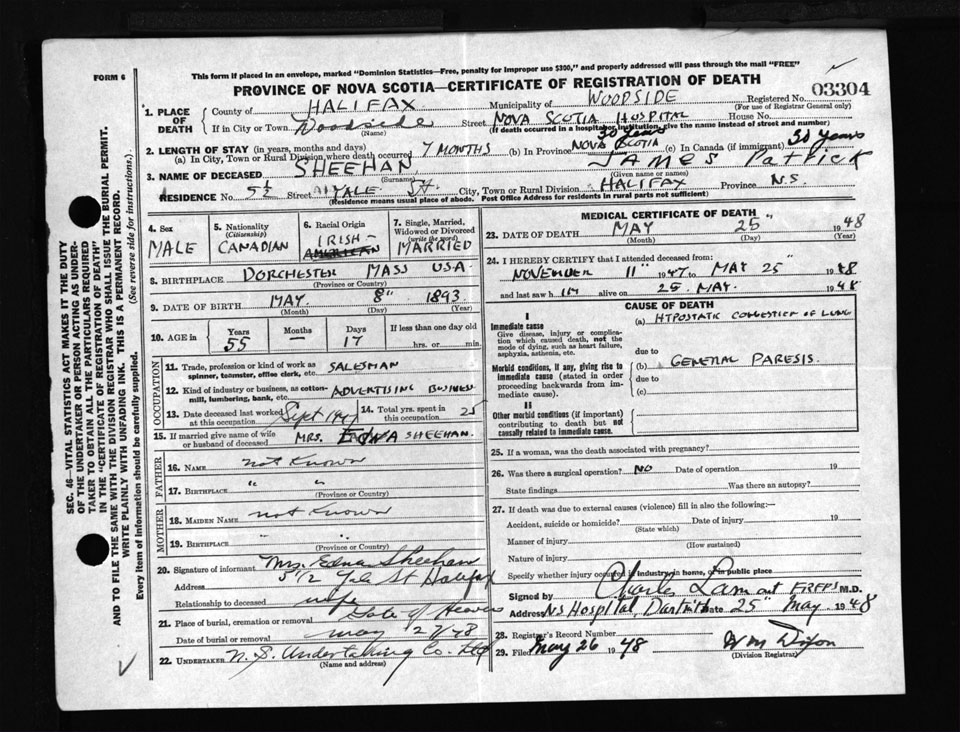 FORM 6
This form if placed in an envelope, marked "Dominion Statistics—Free, penalty for improper use $300," and properly addressed will pass through the mail "FREE"
PROVINCE OF NOVA SCOTIA—CERTIFICATE OF REGISTRATION OF DEATH
03304
1. PLACE OF DEATH County of HALIFAX Municipality of WOODSIDE Registered No.
(For use of Registrar General only)
If in City or Town Woodside Street NOVA SCOTIA HOSPITAL House No.
(Name) (If death occurred in a hospital or institution, give the name instead of street and number)
2. LENGTH OF STAY (in years, months and days) 30 years 30 years
(a) In City, Town or Rural Division where death occurred 7 MONTHS (b) In Province NOVA SCOTIA (c) In Canada (if immigrant)
3. NAME OF DECEASED SHEEHAN, JAMES Patrick
(Surname) (Given name or names)
RESIDENCE No. 5½ Street YALE St. City, Town or Rural Division HALIFAX Province N.S.
(Residence means usual place of abode. Post Office Address for residents in rural parts not sufficient)
4. Sex MALE
5. Nationality (Citizenship) CANADIAN
6. Racial Origin IRISH- AMERICAN
7. Single, Married, Widowed or Divorced (write the word) MARRIED
8. BIRTHPLACE DORCHESTER MASS USA.
(Province or Country)
9. DATE OF BIRTH MAY 8" 1893
(Month) (Day) (Year)
10. AGE in Years 55 Months — Days 17 If less than one day old hrs. or min.
OCCUPATION
11. Trade, profession or kind of work as spinner, teamster, office clerk, etc. SALESMAN
12. Kind of industry or business, as cotton-mill, lumbering, bank, etc. ADVERTISING BUSINESS
13. Date deceased last worked at this occupation Sept 1947 14. Total yrs. spent in this occupation 25
15. If married give name of wife or husband of deceased MRS. EDNA SHEEHAN.
FATHER
16. NAME not Known
17. BIRTHPLACE " "
(Province or Country)
MOTHER
18. MAIDEN NAME not Known
19. BIRTHPLACE " "
(Province or Country)
20. Signature of informant Mrs. Edna Sheehan
Address 5½ Yale St Halifax
Relationship to deceased wife
21. Place of burial, cremation or removal Gate of Heaven
Date of burial or removal may 27/48
22. UNDERTAKER N. S. Undertaking Co. Ltd
(Name and address)
MEDICAL CERTIFICATE OF DEATH
23. DATE OF DEATH MAY 25" 1948
(Month) (Day) (Year)
24. I HEREBY CERTIFY that I attended deceased from:
NOVEMBER 11" 1947 to MAY 25" 1948
and last saw h IM alive on 25. MAY. 1948
CAUSE OF DEATH
I
Immediate cause
Give disease, injury or complication which caused death, not the mode of dying, such as heart failure, asphyxia, asthenia, etc.
(a) HYPOSTATIC CONGESTION OF LUNG
due to
Morbid conditions, if any, giving rise to immediate cause (stated in order proceeding backwards from immediate cause).
(b) GENERAL PARESIS.
due to
(c)
II
Other morbid conditions (if important) contributing to death but not causally related to immediate cause.
25. If a woman, was the death associated with pregnancy?
26. Was there a surgical operation? NO Date of operation 19
State findings Was there an autopsy?
27. If death was due to external causes (violence) fill in also the following:—
Accident, suicide or homicide? Date of injury 19
(State which)
Manner of injury
(How sustained)
Nature of injury
Specify whether injury occurred in industry, in home, or in public place
Signed by Charles Lamont FRFPS M.D.
Address NS Hospital, Dartmouth Date 25" May. 1948
28. Registrar's Record Number
29. Filed May 26 1948 Wm Dixon
(Division Registrar)
SEC. 46—VITAL STATISTICS ACT MAKES IT THE DUTY
OF THE UNDERTAKER OR PERSON ACTING AS UNDER-
TAKER TO OBTAIN ALL THE PARTICULARS REQUIRED
IN THE "CERTIFICATE OF REGISTRATION OF DEATH"
AND TO FILE THE SAME WITH THE DIVISION REGISTRAR WHO SHALL ISSUE THE BURIAL PERMIT.
WRITE PLAINLY WITH UNFADING INK. THIS IS A PERMANENT RECORD.
Every item of information should be carefully supplied. (See reverse side for instructions.)